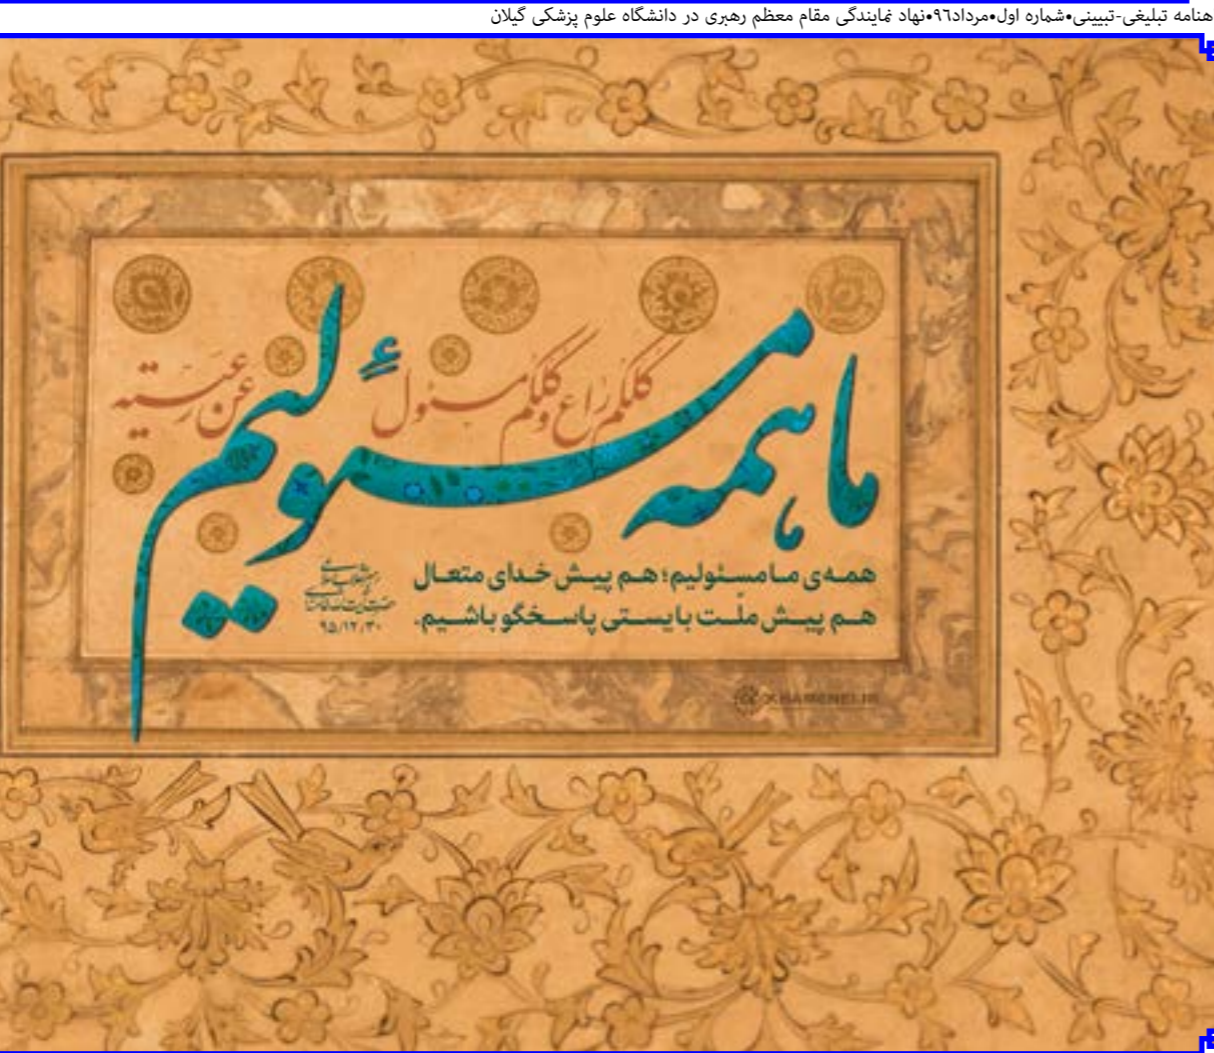 هنامه تبلیغی-تبیینی•شماره اول•مرداد۹٦•نهاد نمایندگی مقام معظم رهبری در دانشگاه علوم پزشکی گیلان
کلکم راع و کلکم مسئول عن رعیته
ما همه مسئولیم
همه‌ی ما مسئولیم؛ هم پیش خدای متعال
هم پیش ملّت بایستی پاسخگو باشیم.
۹۵/۱۲/۳۰
KHAMENEI.IR